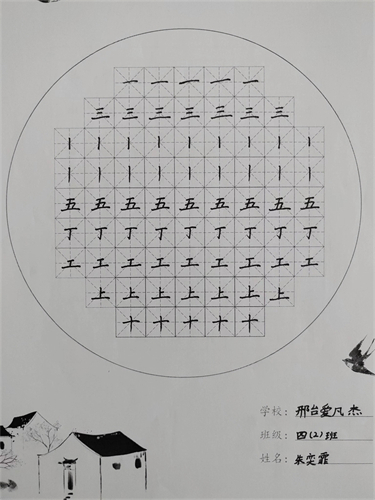 一一一一一
三三三三三三三
丨丨丨丨丨丨丨丨丨
丨丨丨丨丨丨丨丨丨
五五五五五五五五五
丁丁丁丁丁丁丁丁丁
工工工工工工工工工
上上上上上上上
十十十十十
学校：邢台爱凡杰
班级：四(2)班
姓名：朱奕霏